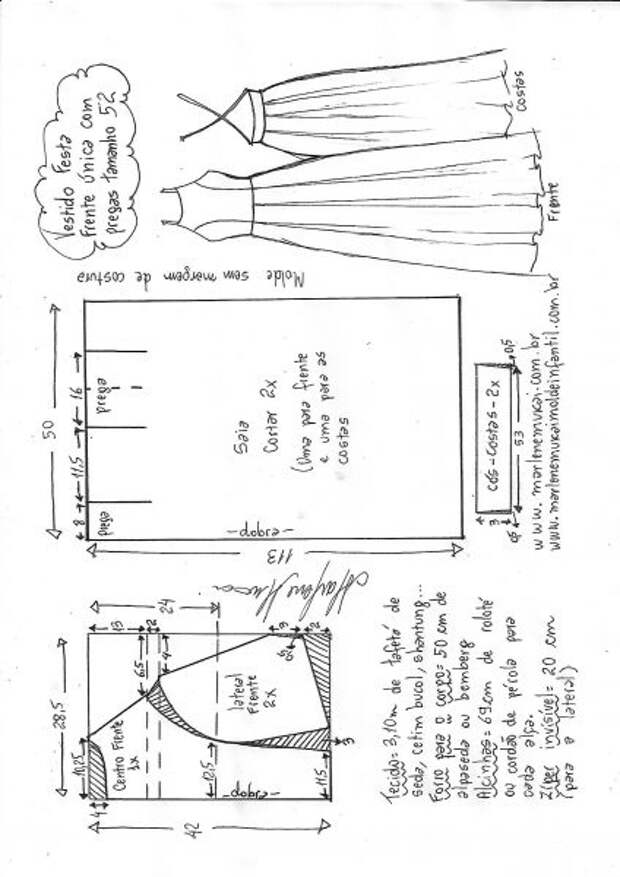 Vestido Festa
Frente única com
pregas tamanho 52
Costas
Frente
Molde sem margem de costura
50
8
11,5
16
prega
prega
Saia
Cortar 2x
(Uma para frente
e uma para as
costas
-dobra-
113
cós-costas-2x
53
3
0,5
0,5
www.marlenemukai.com.br
www.marlenemukaimoldeinfantil.com.br
Marlene Mukai
28,5
24
15
2
6,5
4
3
2
0,5
10,25
4
Centro Frente
1x
lateral
Frente
2x
12,5
-dobra-
11,5
3
42
Tecido= 3,10m de tafetá de
seda, cetim bucol, shantung...
Forro para o corpo= 50 cm de
alpaseda ou bemberg
Alcinhas= 69cm de roloté
ou cordão de pérola para
cada alça.
Zíper invisível= 20 cm
(para a lateral)